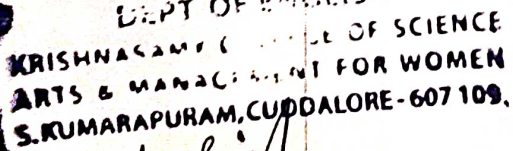 DEPT OF
KRISHNASAMY OF SCIENCE
ARTS & MANAGEMENT FOR WOMEN
S.KUMARAPURAM, CUDDALORE-607 109.